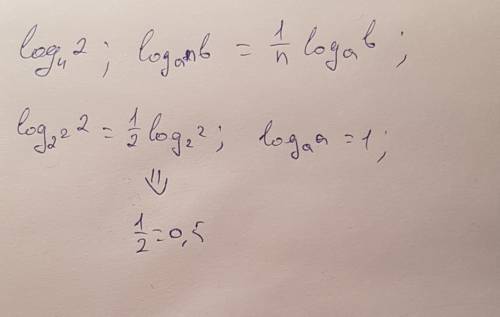 log₄ 2 ; log_aⁿ b = 1/n log_a b ;
log_2² 2 = 1/2 log₂ 2 ; log_a a = 1 ;
⇓
1/2 = 0,5